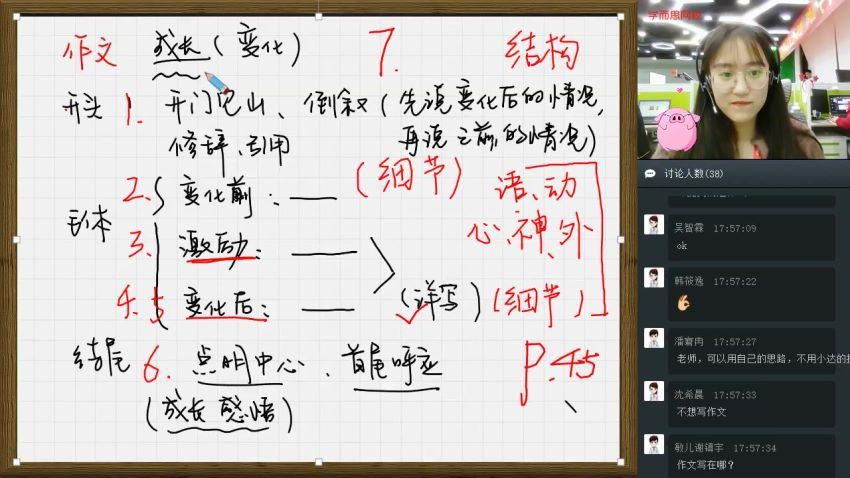 作文 成长(变化) 7. 结构
开头 1. 开门见山、倒叙(先说变化后的情况,
修辞、引用 再说之前的情况)
2. 变化前:—— (细节) 语、动
主体
3. 激励: —— 心、神、外
4.5 变化后: —— (详写) (细节)
结尾 6. 点明中心、首尾呼应 P.45
(成长 感悟)
学而思网校
讨论人数(38)
吴智霖 17:57:09
ok
韩筱逸 17:57:22
潘睿冉 17:57:27
老师,可以用自己的思路,不用小达的
沈希晨 17:57:33
不想写作文
敖儿谢镭宇 17:57:34
作文写在哪?